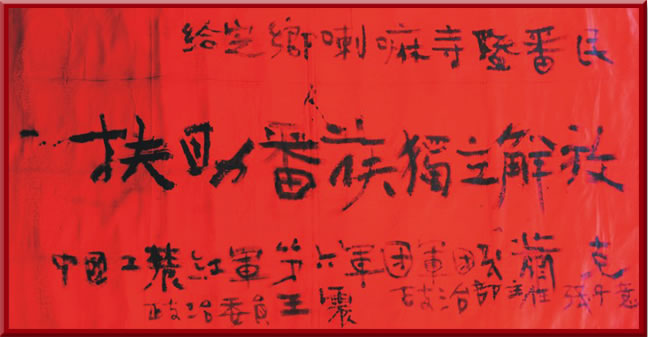 給定鄉喇嘛寺暨番民
扶助番族獨立解放
中國工農紅軍第六軍团軍团長蕭克
政治委員王震 政治部主任張子意